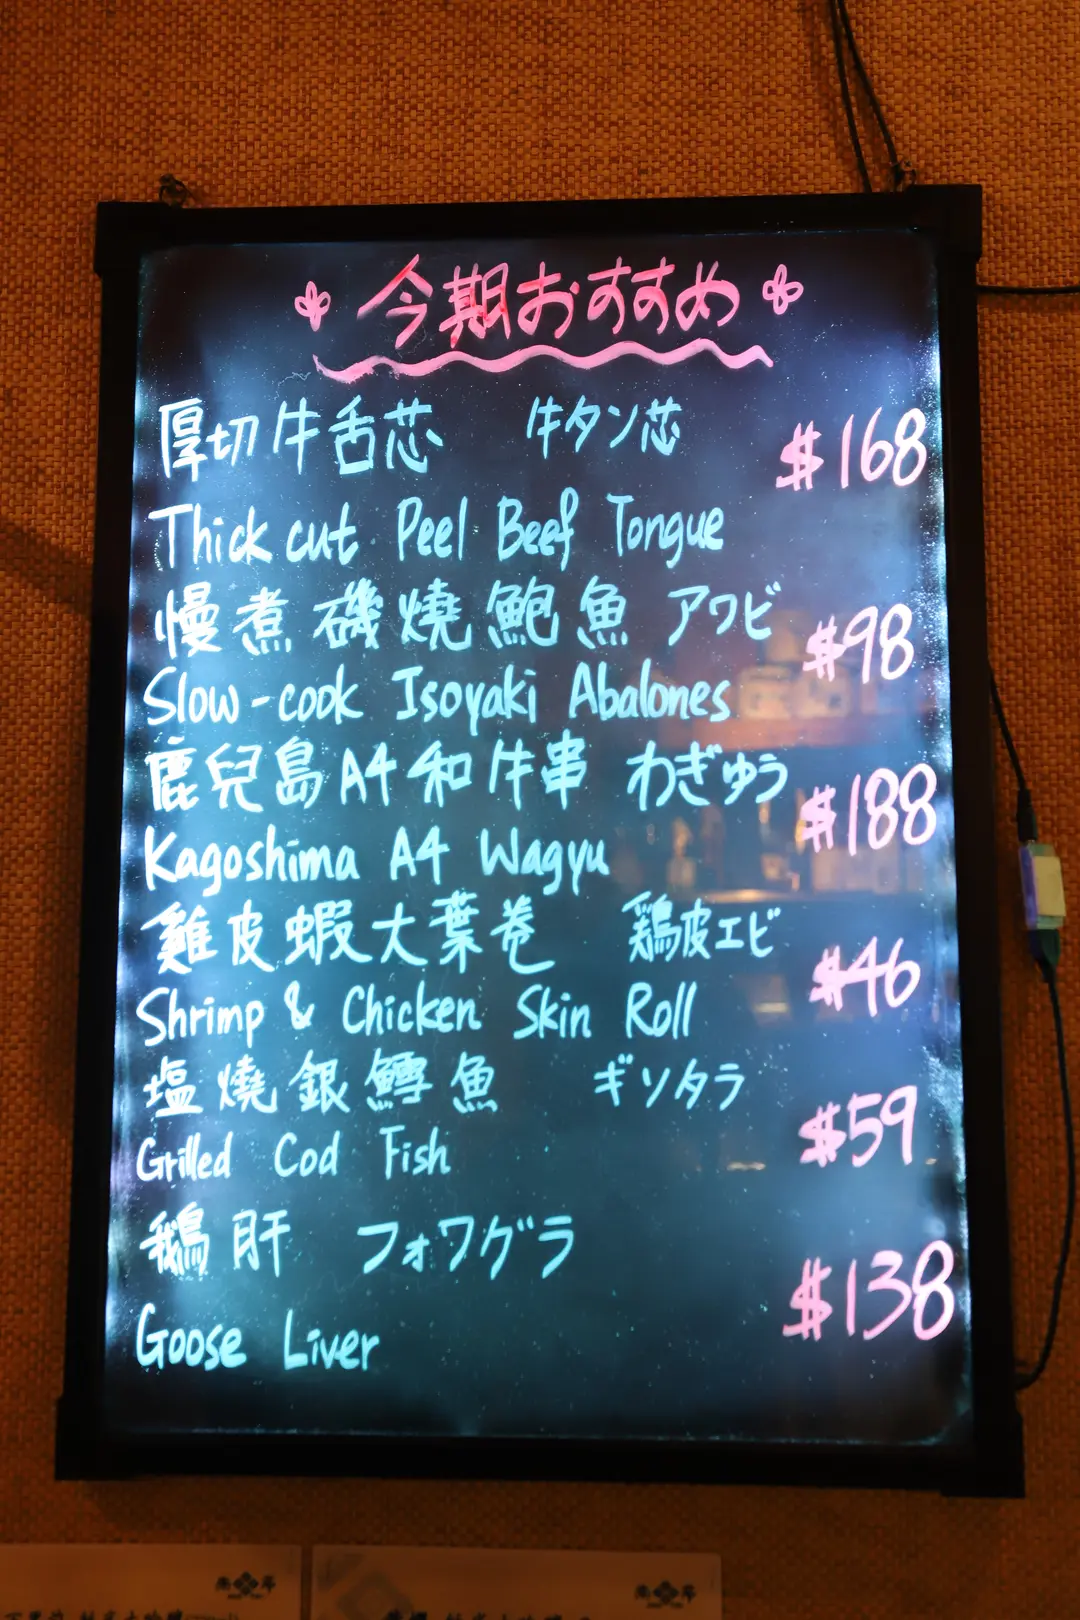 今期おすすめ
厚切牛舌芯 牛タン芯 $168
Thick cut Peel Beef Tongue
慢煮磯燒鮑魚 アワビ $98
Slow-cook Isoyaki Abalones
鹿兒島A4和牛串 わぎゅう $188
Kagoshima A4 Wagyu
雞皮蝦大葉卷 鶏皮エビ $46
Shrimp & Chicken Skin Roll
塩燒銀鱈魚 ギソタラ $59
Grilled Cod Fish
鵝肝 フォワグラ $138
Goose Liver